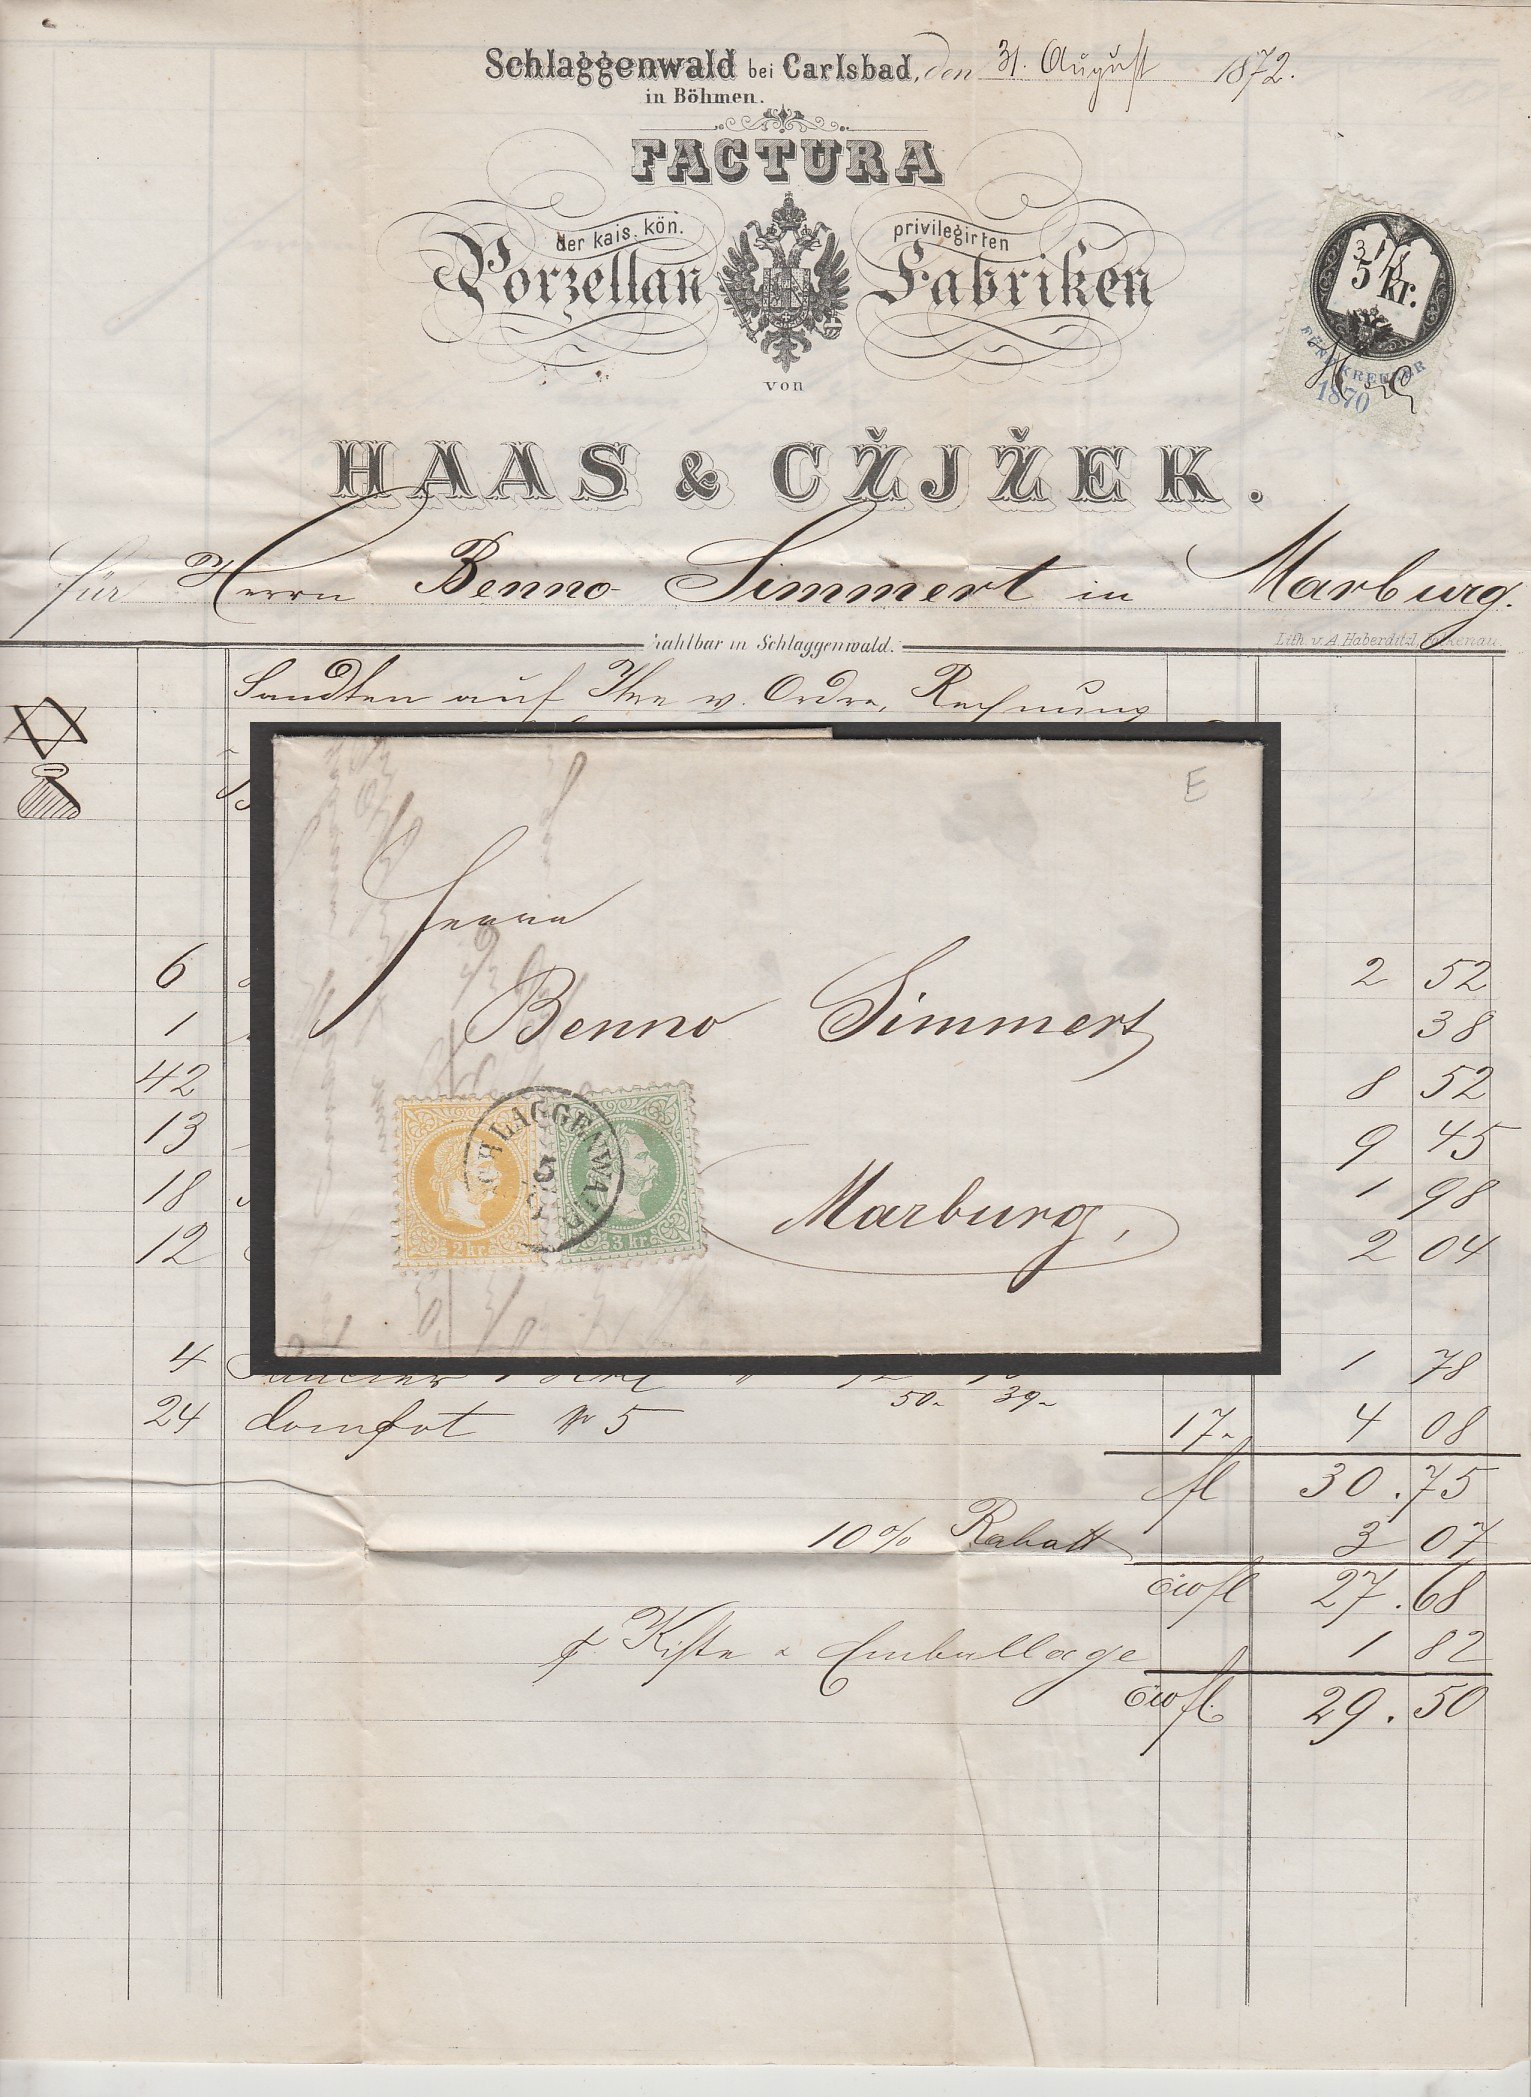 Schlaggenwald bei Carlsbad, den 31. August 1872.
in Böhmen.
FACTURA
der kais. kön. privilegirten
Porzellan Fabriken
von
HAAS & CŽJŽEK.
5 Kr.
FÜNF KREUZER
1870
für Herrn Benno Simmert in Marburg.
zahlbar in Schlaggenwald.
Lith. v. A. Haberditzl, Falkenau
Sandten auf Ihre w. Ordre, Rechnung
E
Herrn
Benno Simmert
Marburg,
SCHLAGGENWALD
5
2 kr.
3 kr.
6 2 52
1 38
42 8 52
13 9 45
18 1 98
12 2 04
4 1 78
50 39
24 Compot 5 17 4 08
fl 30.75
10% Rabatt 3 07
öwfl 27.68
Kiste & Emballage 1 82
öwfl. 29.50